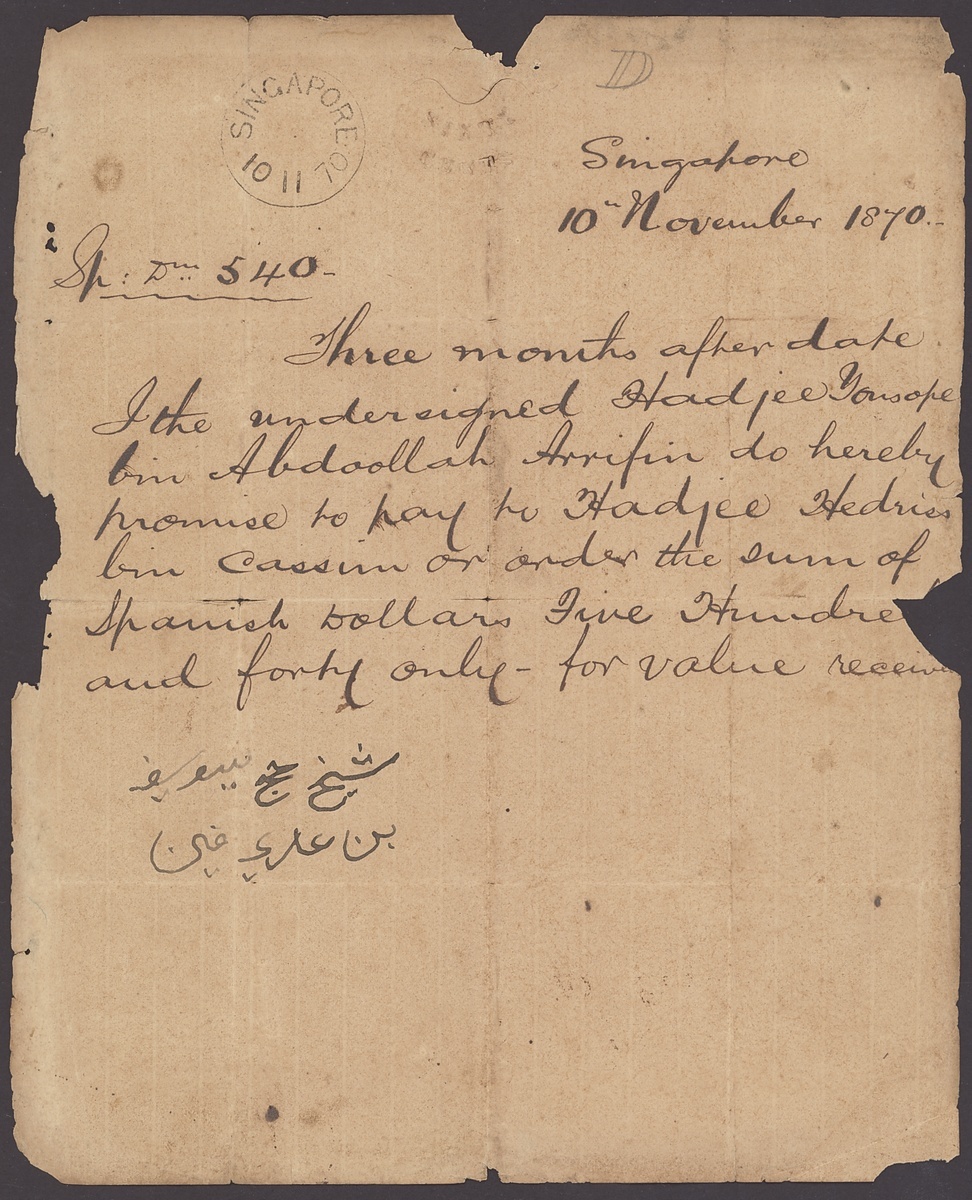 D
SINGAPORE
10 11 70
Singapore
10" November 1870.-
Sp: Drs 540-
Three months after date
I the undersigned Hadjee Yousope
bin Abdoollah Arrifin do hereby
promise to pay to Hadjee Hedriss
bin Cassim or order the sum of
Spanish Dollars Five Hundre
and forty only - for value receive
شيخ حج يوسف
بن عاريفين